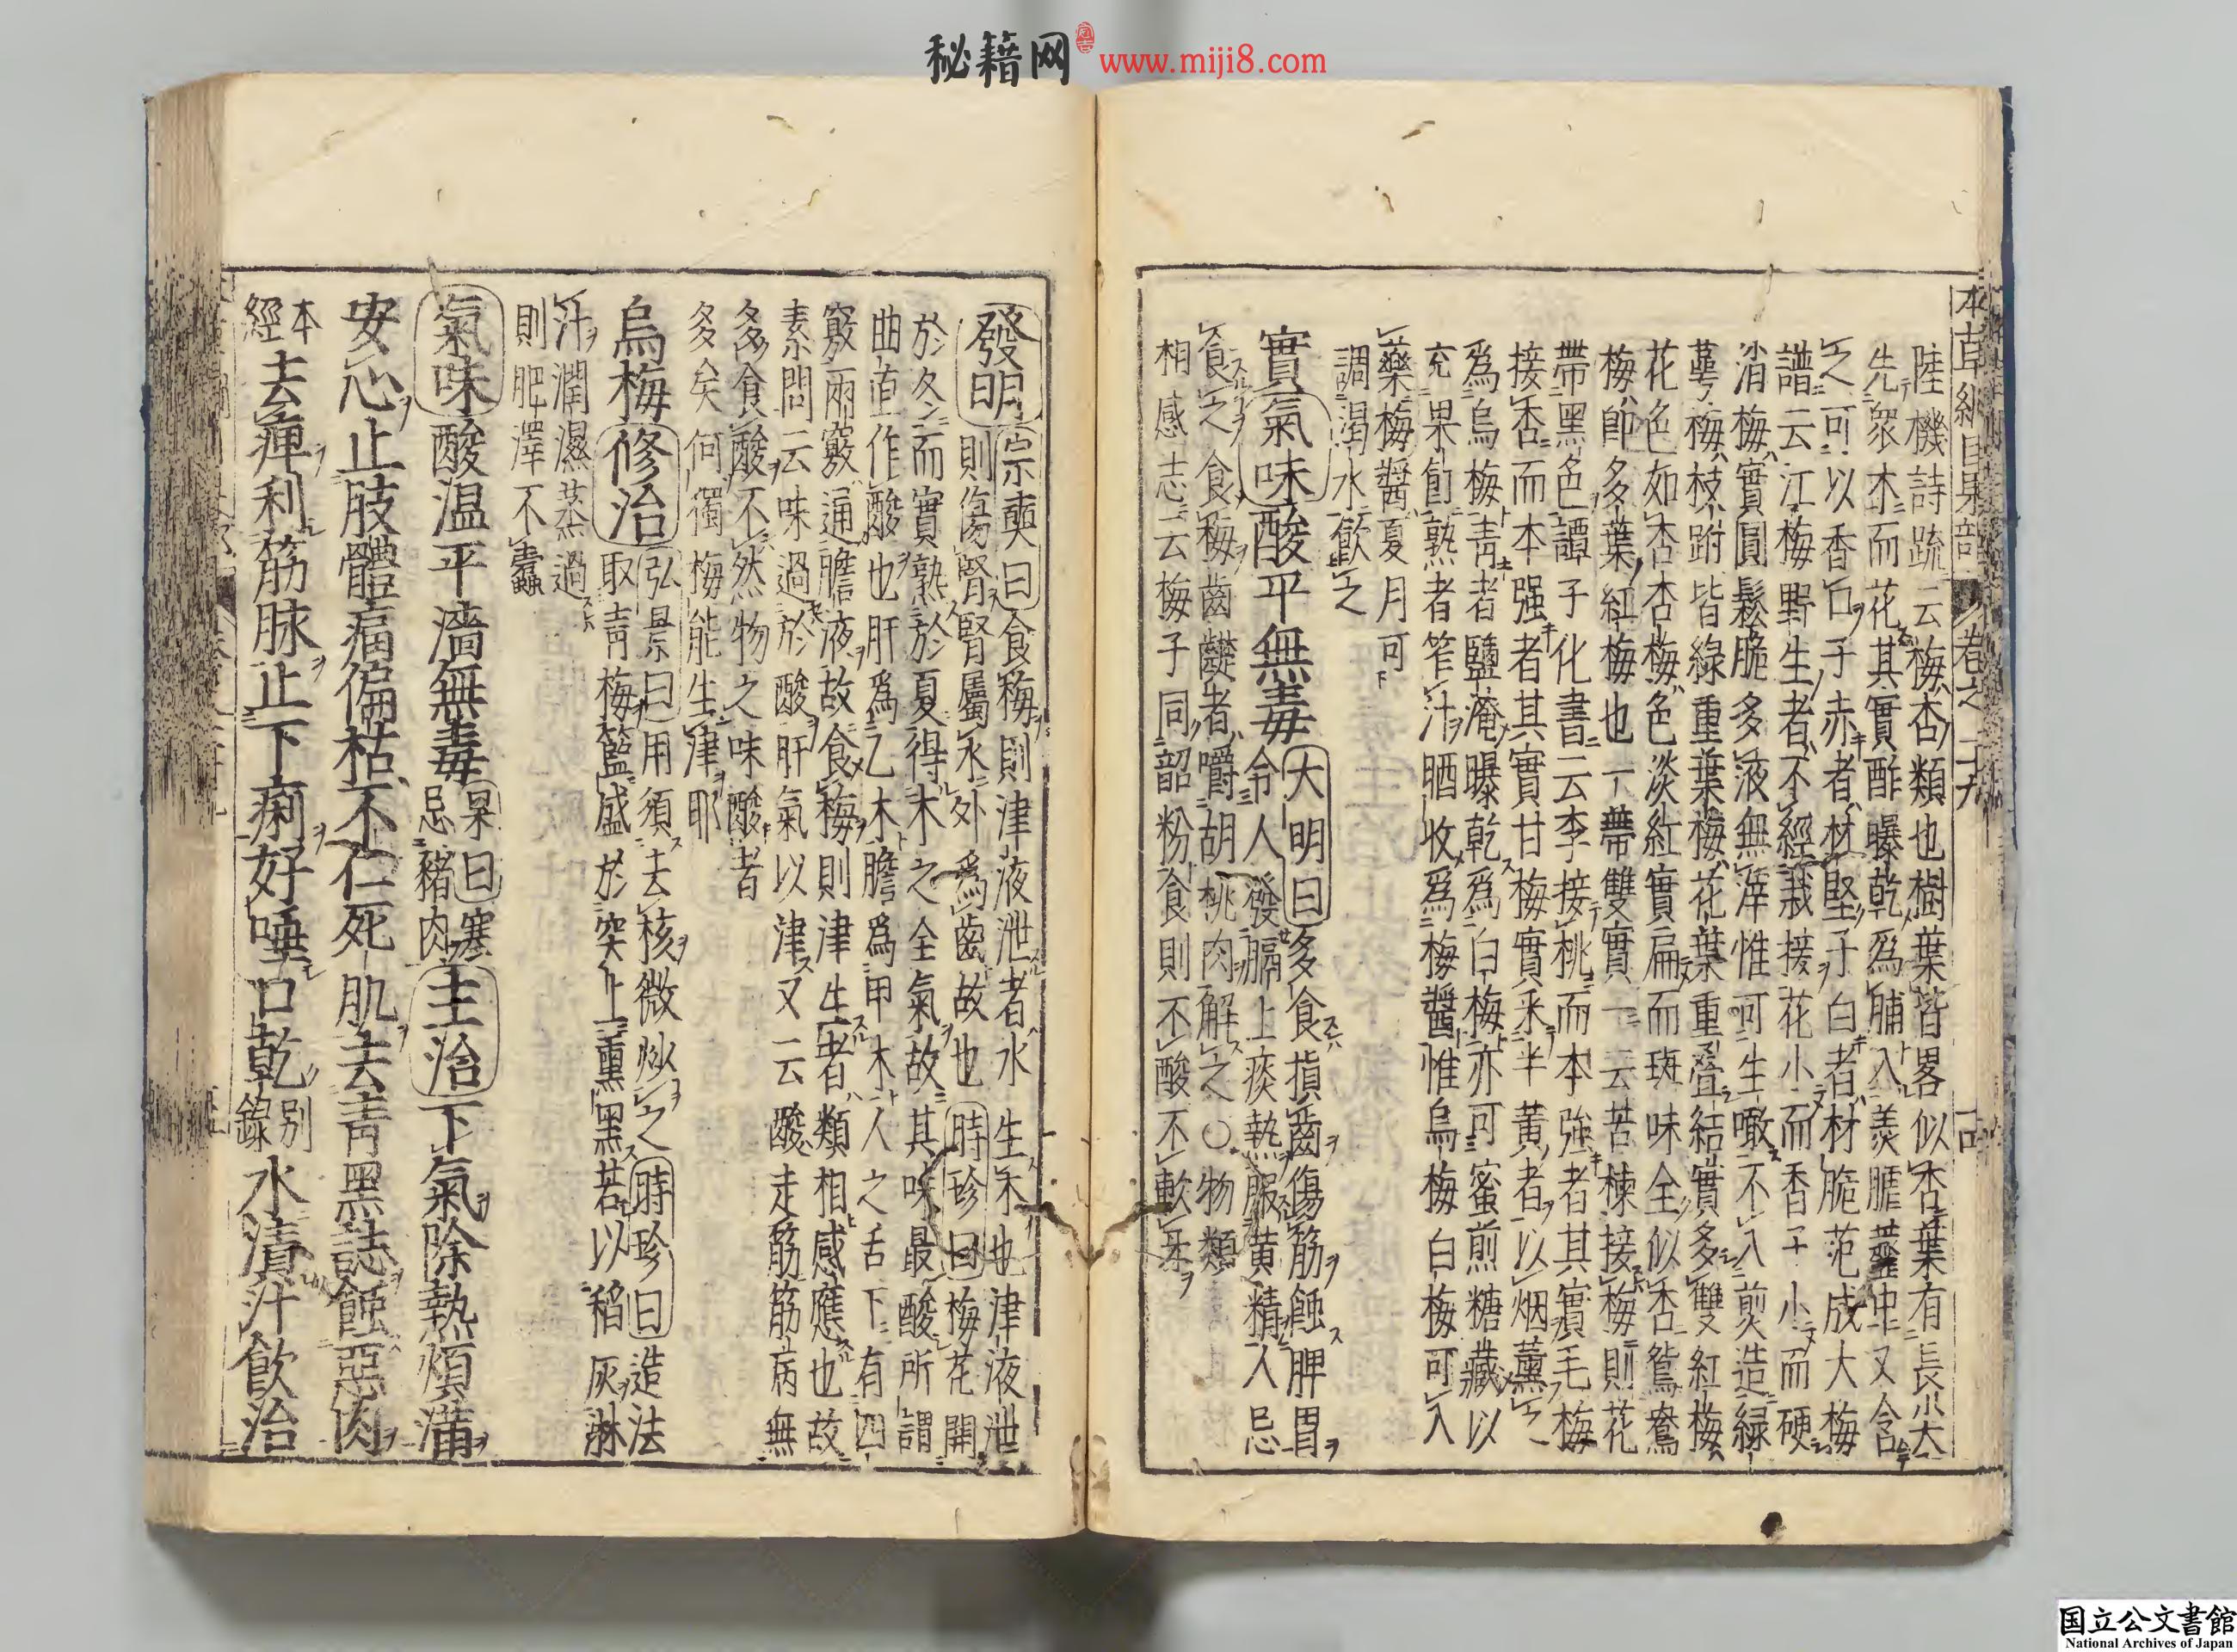 秘籍网 www.miji8.com
本草綱目果部 卷之二十九
陸機詩疏云梅杏類也樹葉皆畧似杏葉有長尖大
先衆木而花其實酢曝乾爲脯入羹臛虀中又含
之可以香口子赤者材堅子白者材脆范成大梅
譜云江梅野生者不經栽接花小而香子小而硬
消梅實圓鬆脆多液無滓惟可生噉不入煎造綠
萼梅枝跗皆綠重葉梅花葉重疊結實多雙紅梅
花色如杏杏梅色淡紅實扁而斑味全似杏鴛鴦
梅即多葉紅梅也一帶雙實一云苦楝接梅則花
帶黑色譚子化書云李接桃而本強者其實毛梅
接杏而本强者其實甘梅實采半黄者以烟薰之
爲烏梅青者鹽淹曝乾爲白梅亦可蜜煎糖藏以
充果飣熟者笮汁晒收爲梅醬惟烏梅白梅可入
藥梅醬夏月可
調渴水飲之
實氣味酸平無毒大明曰多食損齒傷筋蝕脾胃
令人發膈上痰熱服黄精人忌
食之食梅齒齼者嚼胡桃肉解之○物類
相感志云梅子同韶粉食則不酸不軟牙
發明宗奭曰食梅則津液泄者水生木也津液泄
則傷腎腎屬水外爲齒故也時珍曰梅花開
於冬而實熟於夏得木之全氣故其味最酸所謂
曲直作酸也肝爲乙木膽爲甲木人之舌下有四
竅兩竅通膽液故食梅則津生者類相感應也故
素問云味過於酸肝氣以津又云酸走筋筋病無
多食酸不然物之味酸者
多矣何獨梅能生津耶
烏梅修治弘景曰用須去核微炒之時珍曰造法
取青梅籃盛於突上薰黑若以稻灰淋
汁潤濕蒸過
則肥澤不蠹
氣味酸温平濇無毒杲曰寒忌豬肉主治下氣除熱煩滿
安心止肢體痛偏枯不仁死肌去青黑誌蝕惡肉
本經去痺利筋脉止下痢好唾口乾別錄水漬汁飲治
国立公文書館
National Archives of Japan